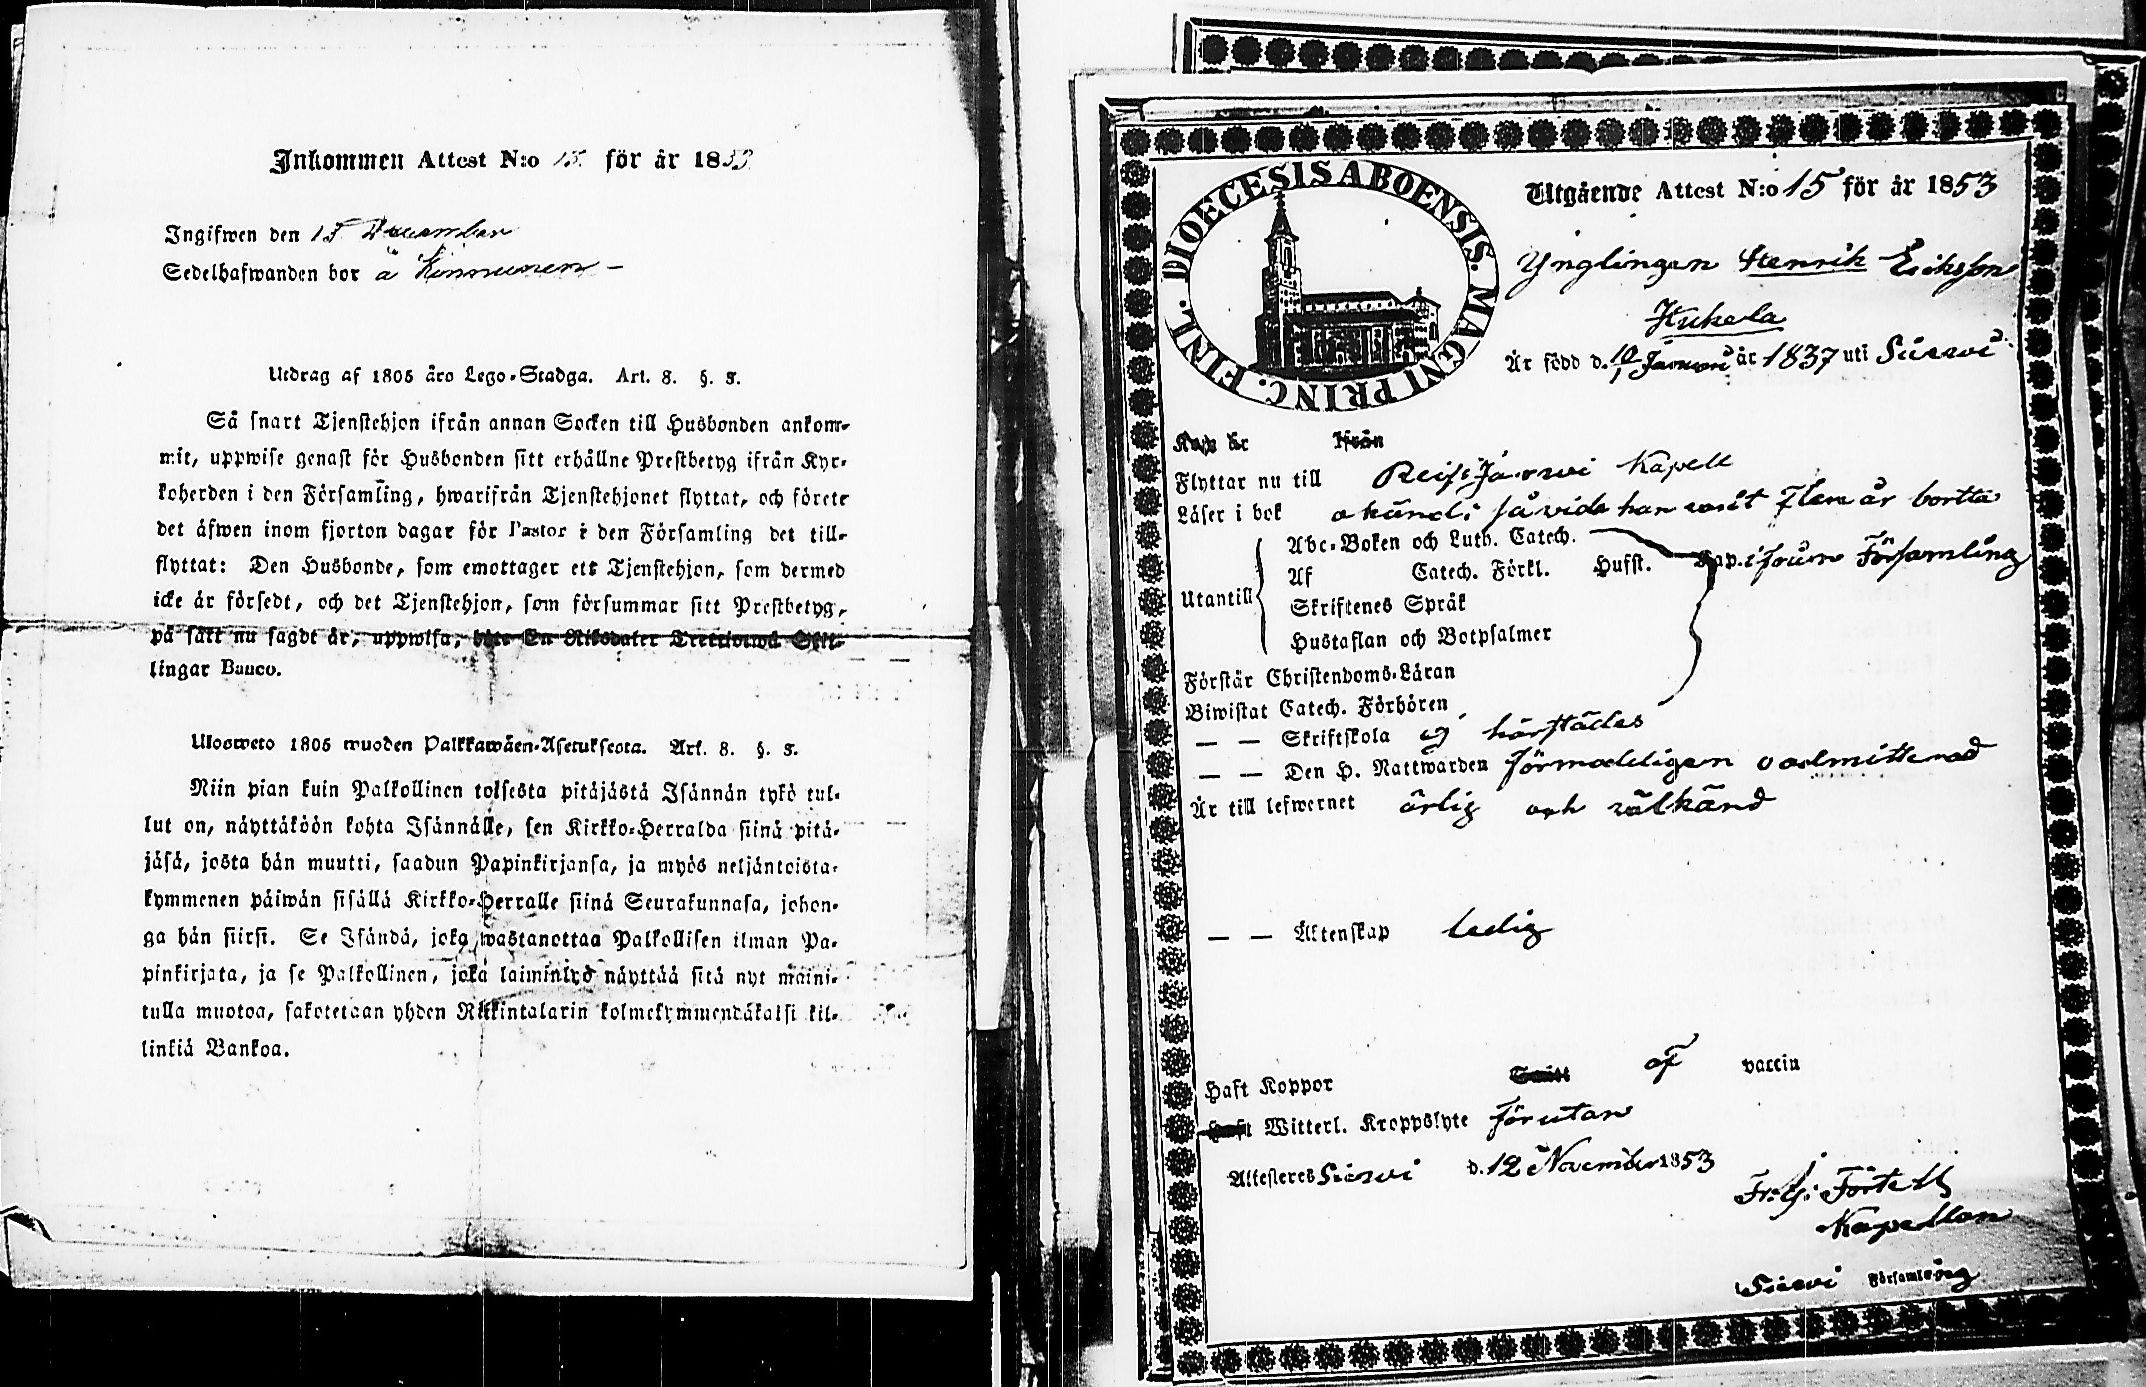 Inkommen Attest N:o 15. för år 1853.
Ingifwen den 15 December
Sedelhafwanden bor å Kinnunen –
Utdrag af 1805 års Lego-Stadga. Art. 8. §. 5.
Så snart Tjenstehjon ifrån annan Socken till Husbonden ankom-
mit, uppwise genast för Husbonden sitt erhållne Prestbetyg ifrån Kyr-
koherden i den Församling, hwarifrån Tjenstehjonet flyttat, och förete
det äfwen inom fjorton dagar för Pastor i den Församling det till-
flyttat: Den Husbonde, som emottager ett Tjenstehjon, som dermed
icke är försedt, och det Tjenstehjon, som försummar sitt Prestbetyg,
på sätt nu sagdt är, uppwisa, böte En Riksdaler Trettiotwå Skil-
lingar Banco.
Ulosweto 1805 wuoden Palkkawäen-Asetuksesta. Art. 8. §. 5.
Niin pian kuin Palkollinen toisesta pitäjästä Isännän tykö tul-
lut on, näyttäköön kohta Isännälle, sen Kirkko-Herralda siinä pitä-
jäsä, josta hän muutti, saadun Papinkirjansa, ja myös neljäntoista-
kymmenen päiwän sisällä Kirkko-Herralle siinä Seurakunnasa, johon-
ga hän siirsi. Se Isändä, joka wastanottaa Palkollisen ilman Pa-
pinkirjata, ja se Palkollinen, joka laiminlyö näyttää sitä nyt maini-
tulla muotoa, sakotetaan yhden Riikintalarin kolmekymmendäkaksi kil-
linkiä Bankoa.
DIOECESIS ABOENSIS. MAGNI PRINC. FINL.
Utgående Attest N:o 15 för år 1853
Ynglingen Henrik Eriksson
Kukela
Är född d. 10/1 Januari år 1837 uti Sievi
Kap är Ifrån
Flyttar nu till Reisijärvi Kapell
Läser i bok okändt så vida han varit flera år borta
Abc-Boken och Luth. Catech.
Utantill Af Catech. Förkl. Husst. Kap. ifrån Församling
Skriftenes Språk
Hustaflan och Botpsalmer
Förstår Christendoms-Läran
Biwistat Catech. Förhören
— — Skriftskola ej härstädes
— — Den H. Nattwarden förmodeligen oadmitterad
Är till lefwernet ärlig och välkänd
— — Äktenskap ledig
Haft Koppor af vaccin
Haft Witterl. Kroppslyte förutan
Attesteres Sievi d. 12 November 1853
Fr. G. Förtell
Kapellan
Sievi Församling